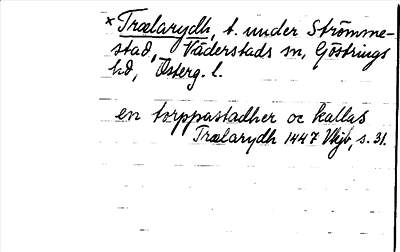 ×Trælarydh, t. under Strömme-
stad, Väderstads sn, Göstrings
hd, Österg. l.
en torppastadher oc kallas
Trælarydh 1447 Vkjb, s. 31.